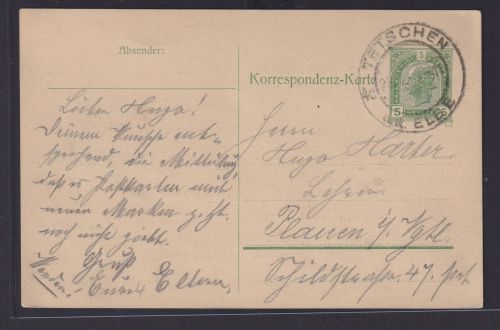 Absender:
Korrespondenz-Karte
TETSCHEN
ELBE
5
Lieben Hugo!
Deinem Wunsche ent-
sprechend, die Mitteilung,
daß es Postkarten mit
neuen Marken
noch nicht giebt.
Gruß
Eure Eltern.
Herrn
Hugo Harter
Plauen i/Vgtl.
Schildstraße 47.